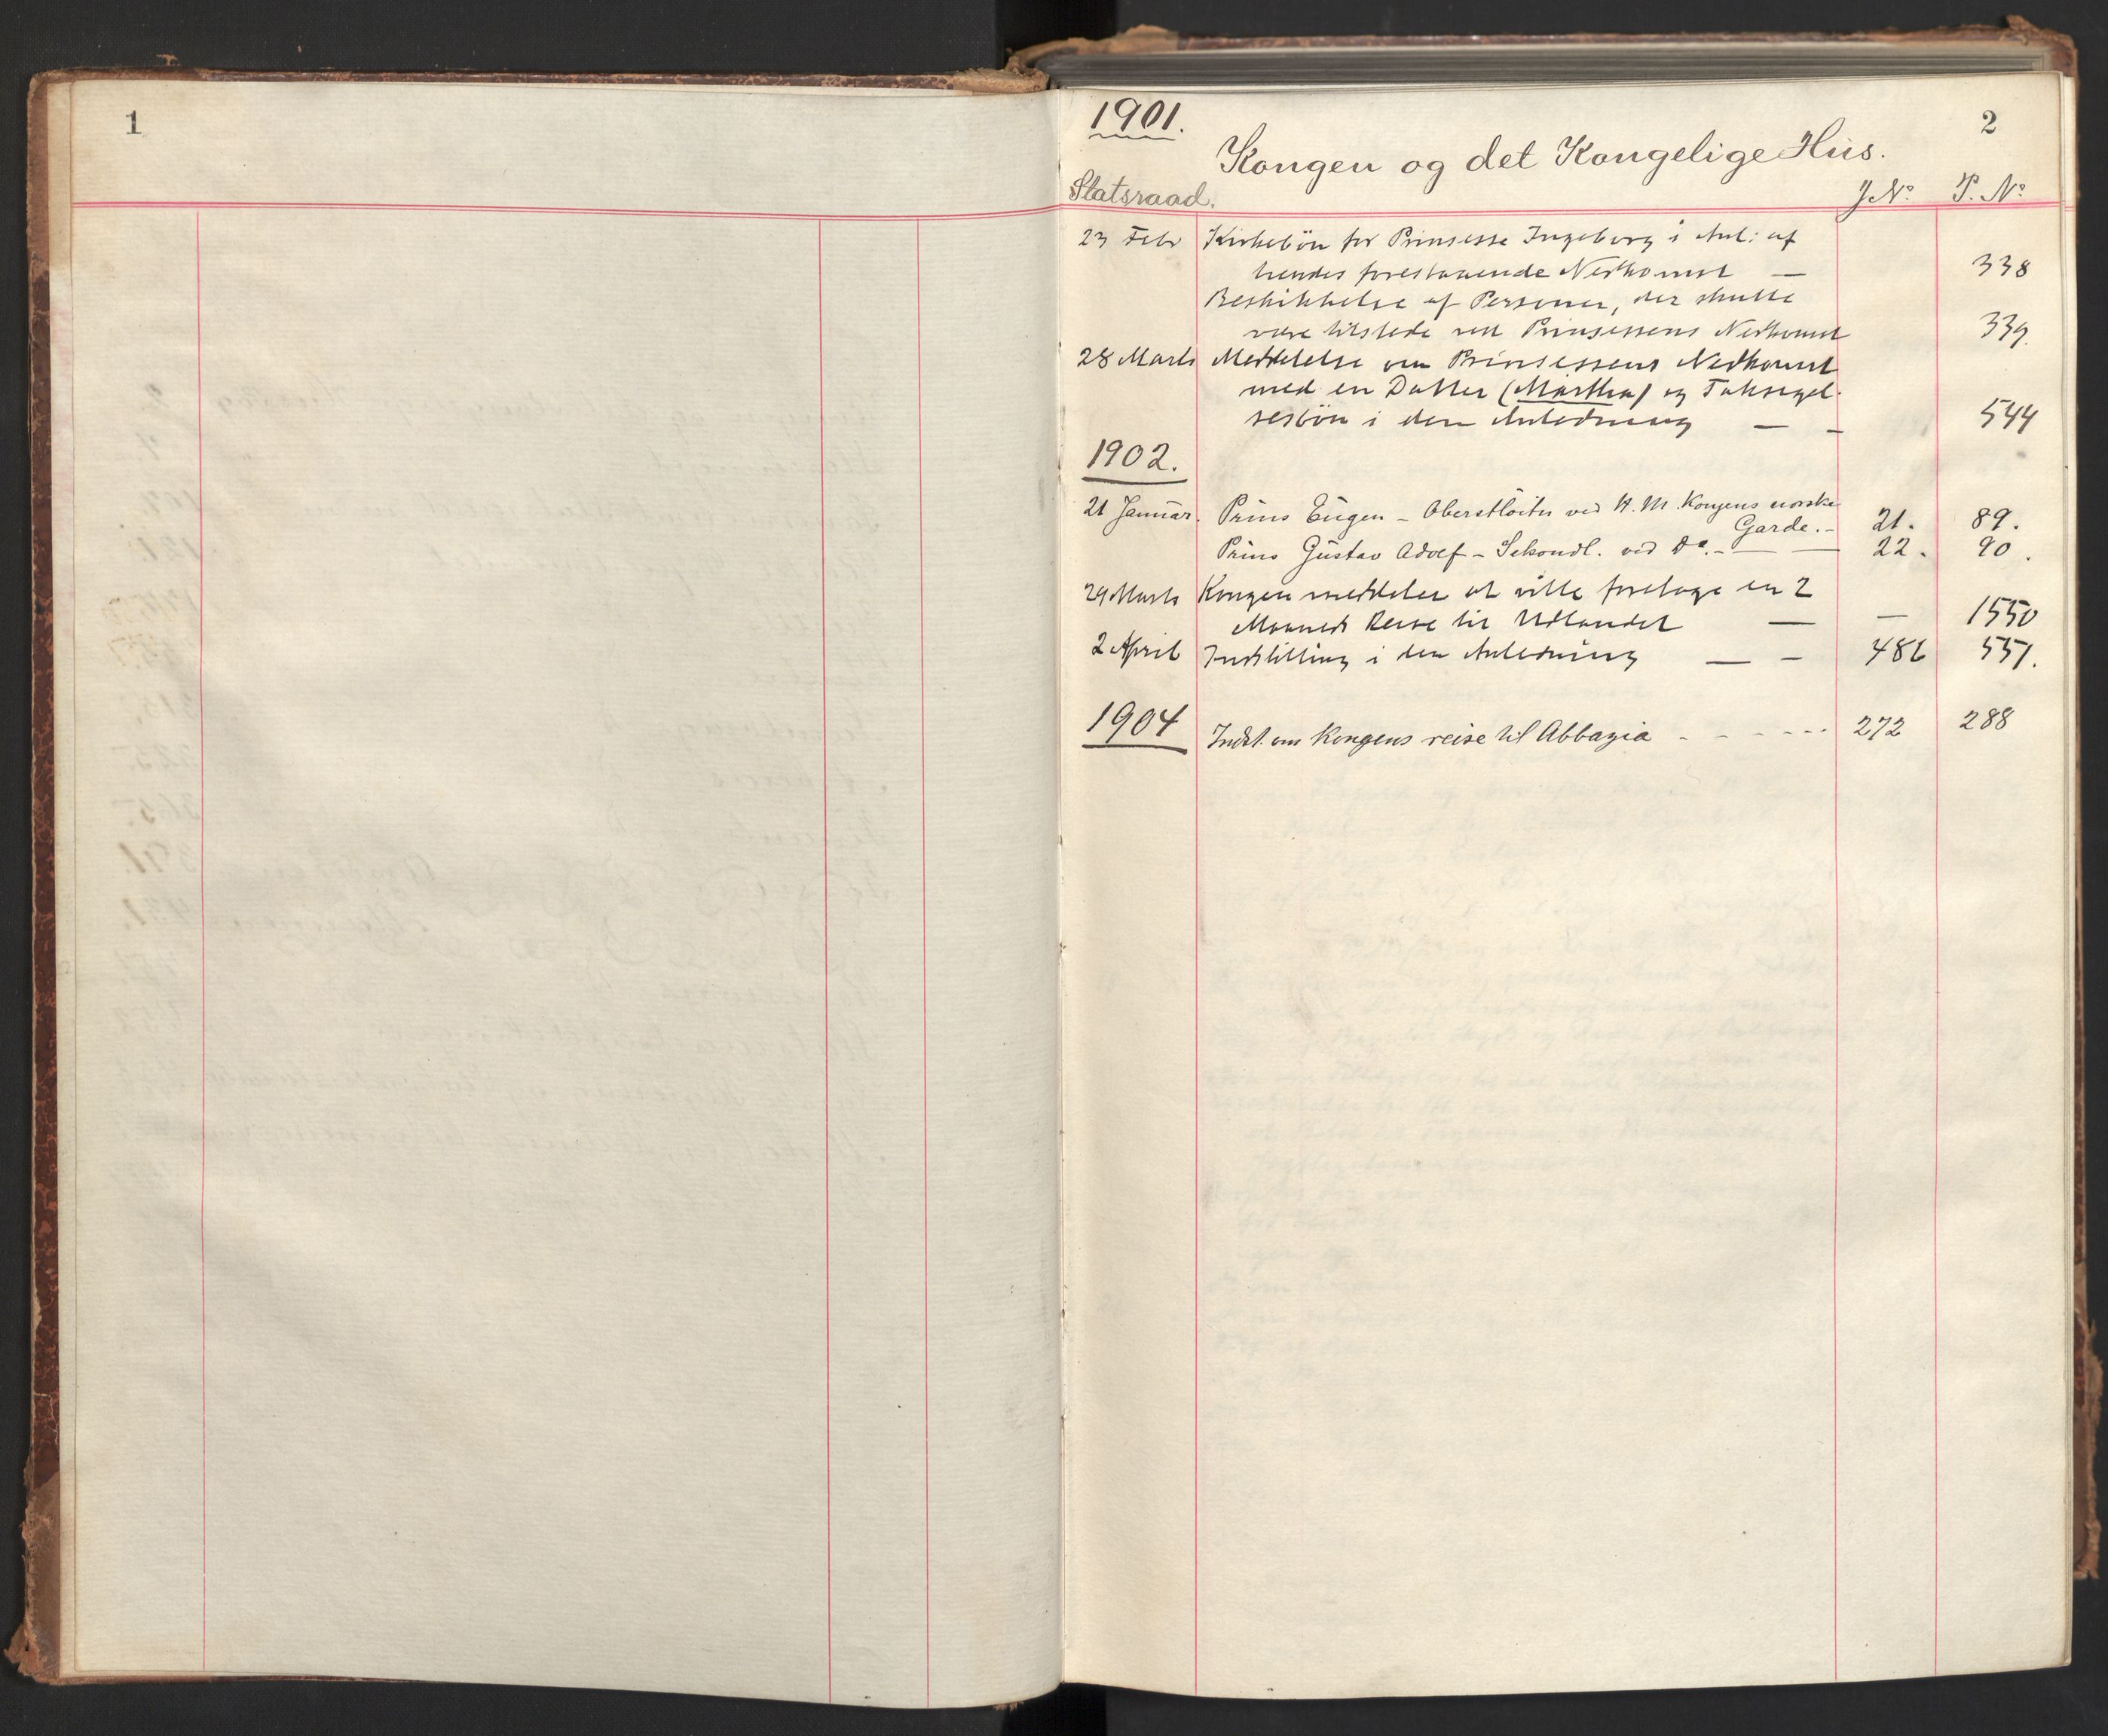 1
1901.
2
Kongen og det Kongelige Hus.
Statsraad.
J. No. P. No.
23 Febr Kirkebön for Prinsesse Ingeborg i Anl: af
hendes forestaaende Nedkomst — 338
Beskikkelse af Personer, der skulle
være tilstede ved Prinsessens Nedkomst 339.
28 Marts Meddelelse om Prinsessens Nedkomst
med en Datter (Märtha) og Taksigel-
sesbön i den Anledning — — 544
1902.
21 Januar. Prins Eugen - Oberstlöitn ved H. M. Kongens norske
Garde. - 21. 89.
Prins Gustav Adolf - Sekondl. ved Do. - — 22. 90.
29 Marts Kongen meddeler at ville foretage en 2
Maaneds Reise til Udlandet — — 1550
2 April Indstilling i den Anledning — — 486 557.
1904 Indst. om Kongens reise til Abbazia - - - - - - 272 288